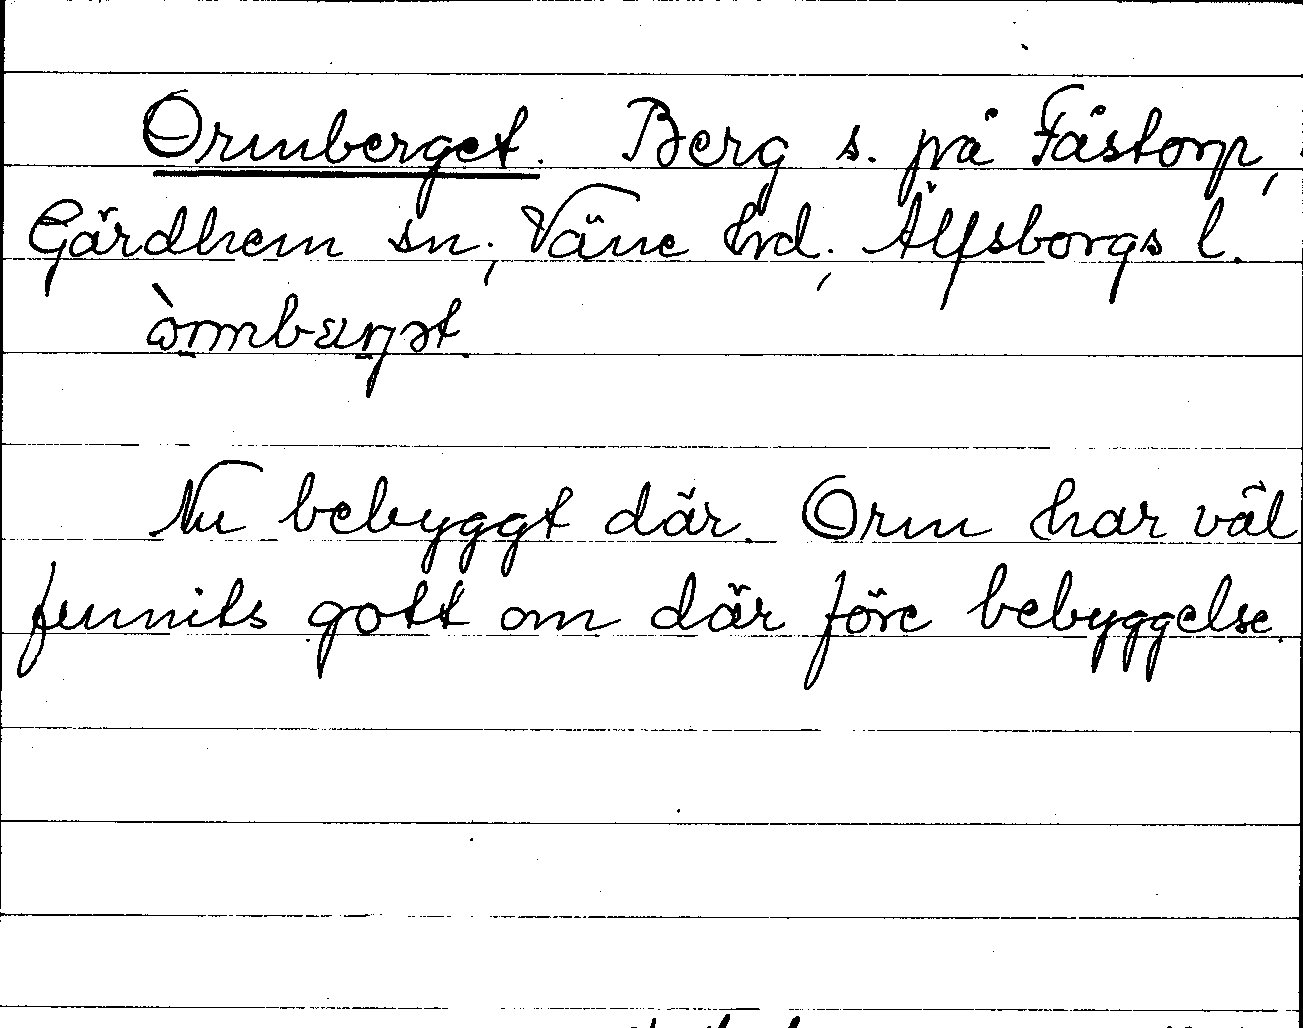 Ormberget. Berg s. på Fästorp,
Gärdhem sn; Väne hd; Älfsborgs l.
Nu bebyggt där. Orm har väl
funnits gott om där före bebyggelse.